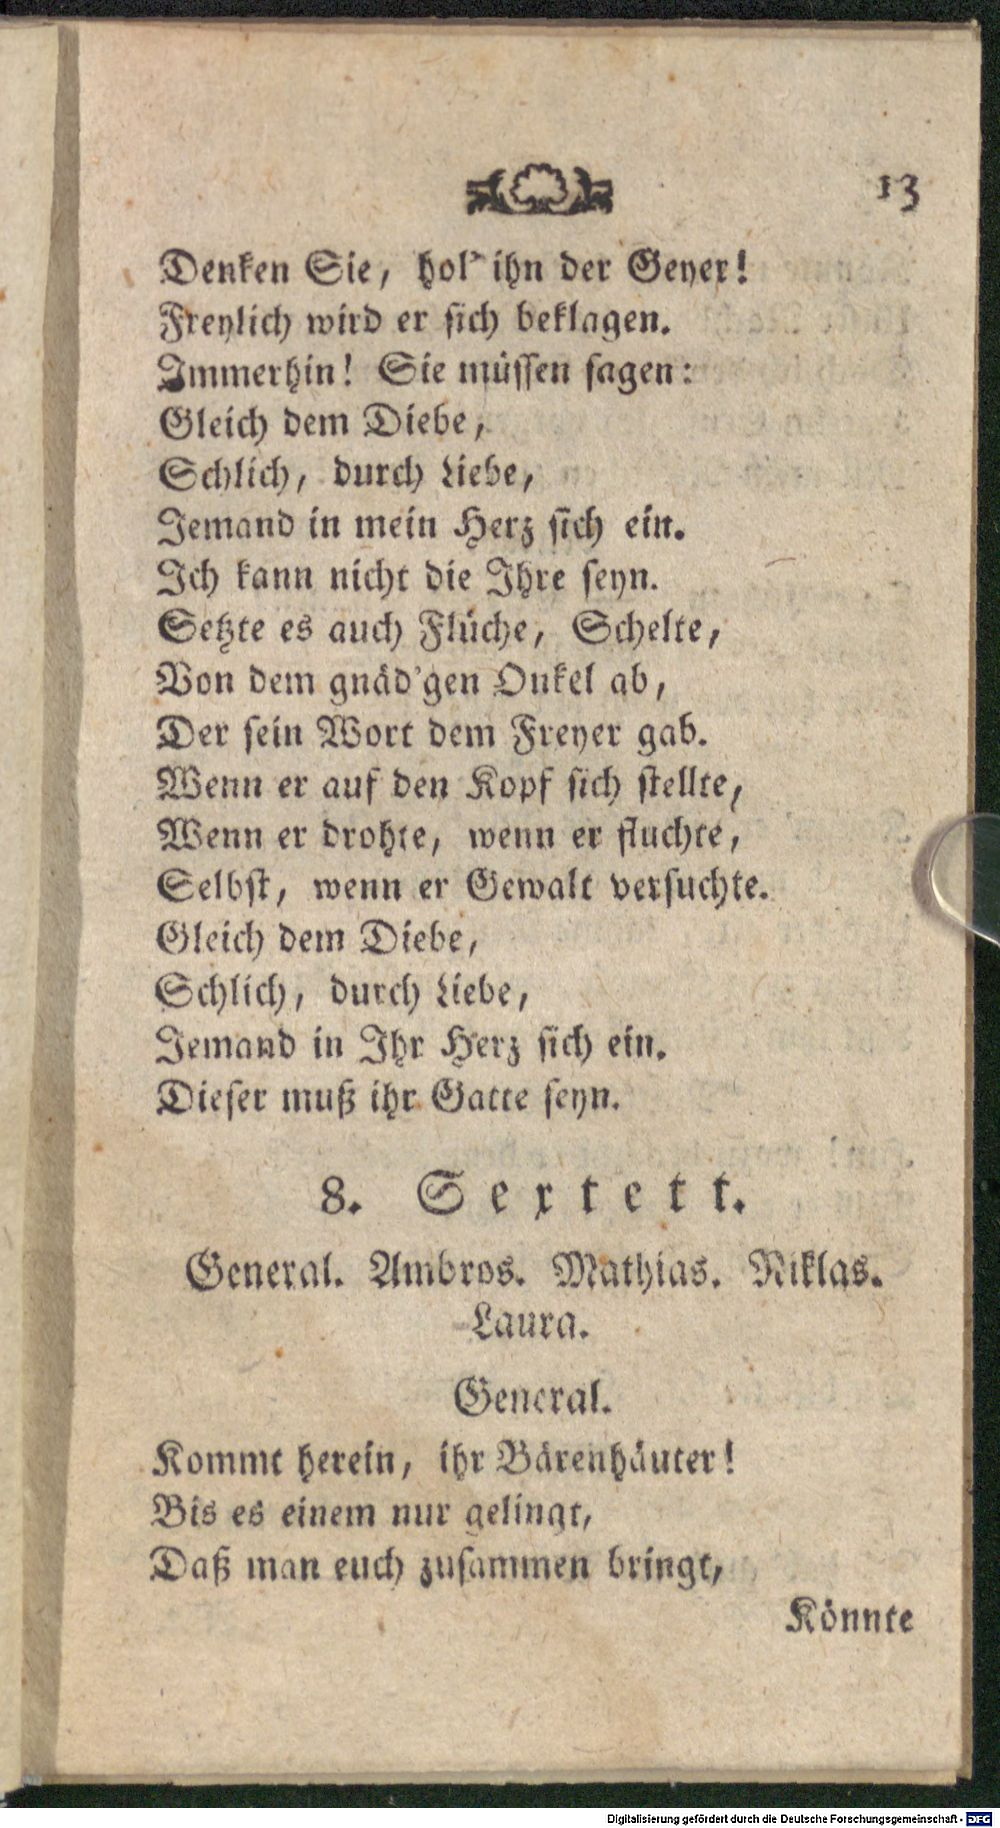 13
Denken Sie, hol' ihn der Geyer!
Freylich wird er sich beklagen.
Immerhin! Sie müssen sagen:
Gleich dem Diebe,
Schlich, durch Liebe,
Jemand in mein Herz sich ein.
Ich kann nicht die Ihre seyn.
Setzte es auch Flüche, Schelte,
Von dem gnäd'gen Onkel ab,
Der sein Wort dem Freyer gab.
Wenn er auf den Kopf sich stellte,
Wenn er drohte, wenn er fluchte,
Selbst, wenn er Gewalt versuchte.
Gleich dem Diebe,
Schlich, durch Liebe,
Jemand in Ihr Herz sich ein.
Dieser muß ihr Gatte seyn.
8. Sextett.
General. Ambros. Mathias. Niklas.
Laura.
General.
Kommt herein, ihr Bärenhäuter!
Bis es einem nur gelingt,
Daß man euch zusammen bringt,
Könnte
Digitalisierung gefördert durch die Deutsche Forschungsgemeinschaft - DFG